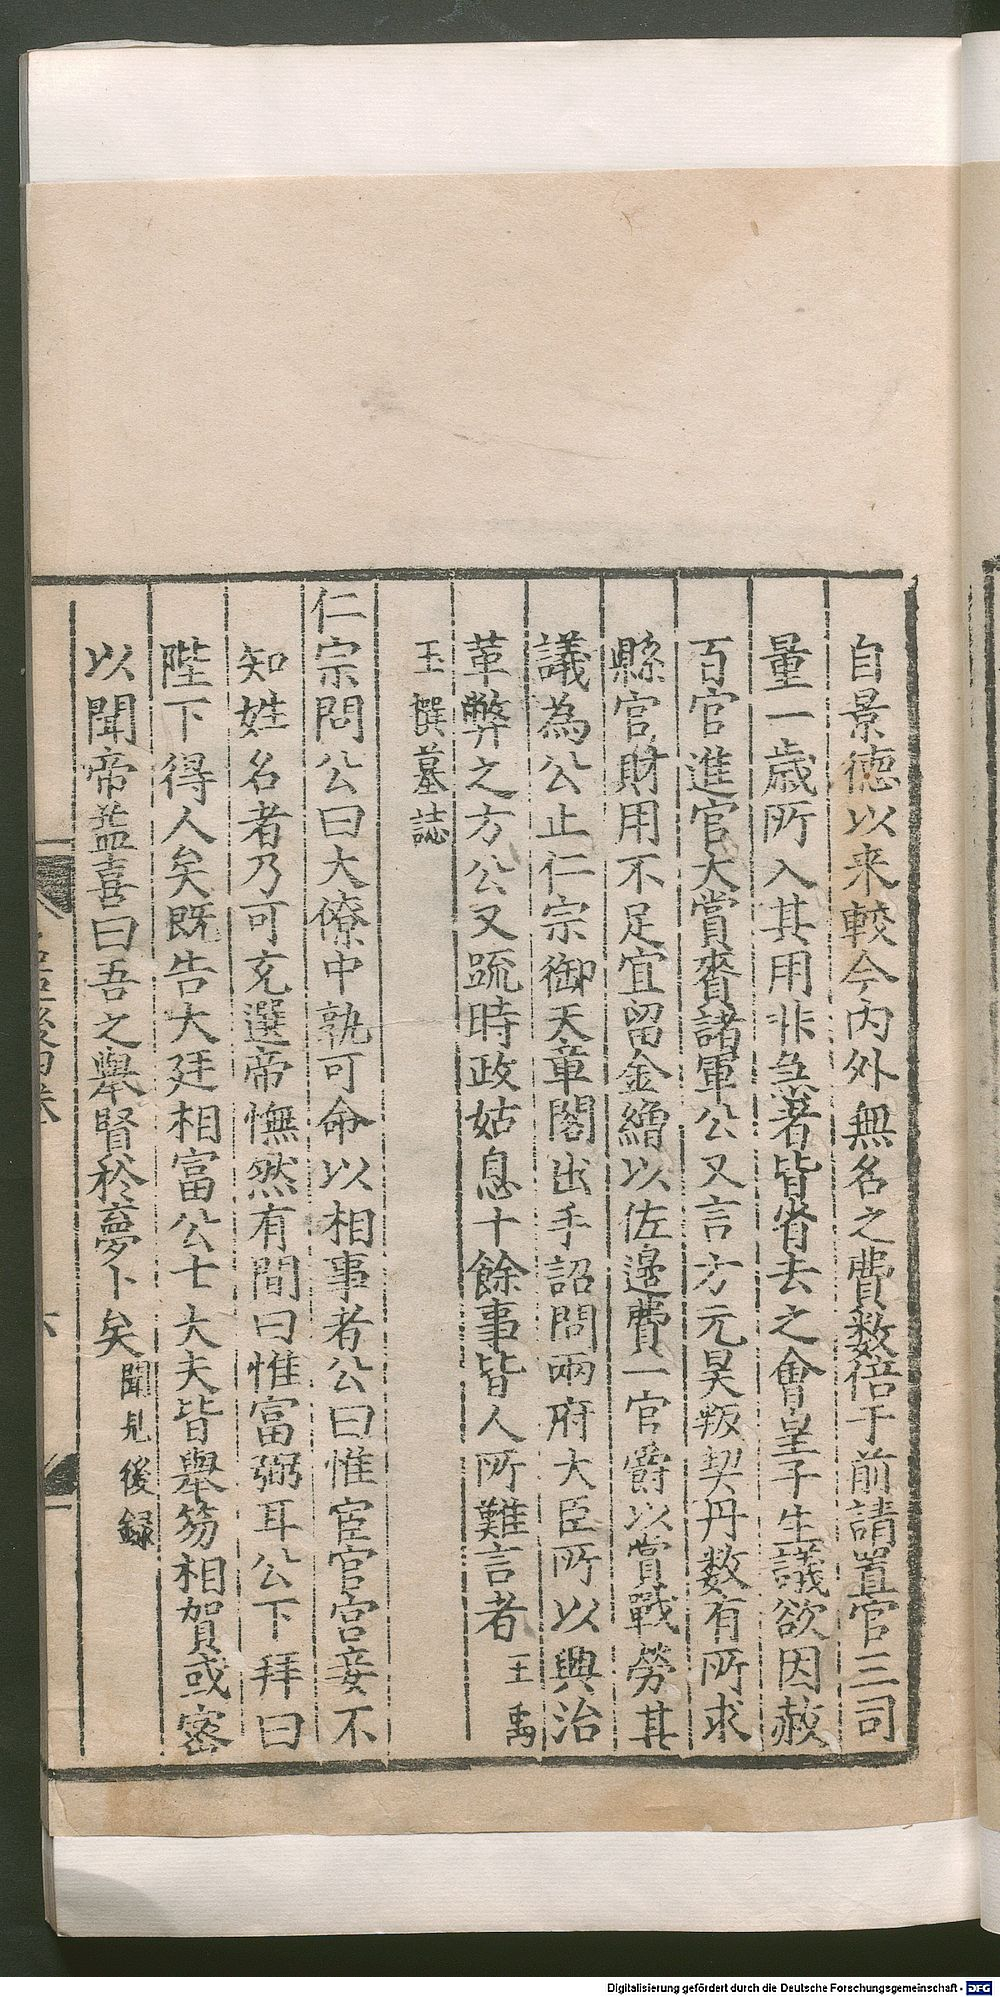 自景德以来較今内外無名之費数倍于前請置官三司
量一歳所入其用非急者皆省去之會皇子生議欲因赦
百官進官大賞賚諸軍公又言方元昊叛契丹数有所求
縣官財用不足宜留金繒以佐邊費一官爵以賞戰勞其
議為公止仁宗御天章閣出手詔問兩府大臣所以興治
革弊之方公又疏時政姑息十餘事皆人所難言者王禹
玉撰墓誌
仁宗問公曰大僚中孰可命以相事者公曰惟宦官宫妾不
知姓名者乃可充選帝憮然有間曰惟富弼耳公下拜曰
陛下得人矣既告大廷相富公士大夫皆舉笏相賀或密
以聞帝益喜曰吾之舉賢於夢卜矣聞見後録
Digitalisierung gefördert durch die Deutsche Forschungsgemeinschaft - DFG